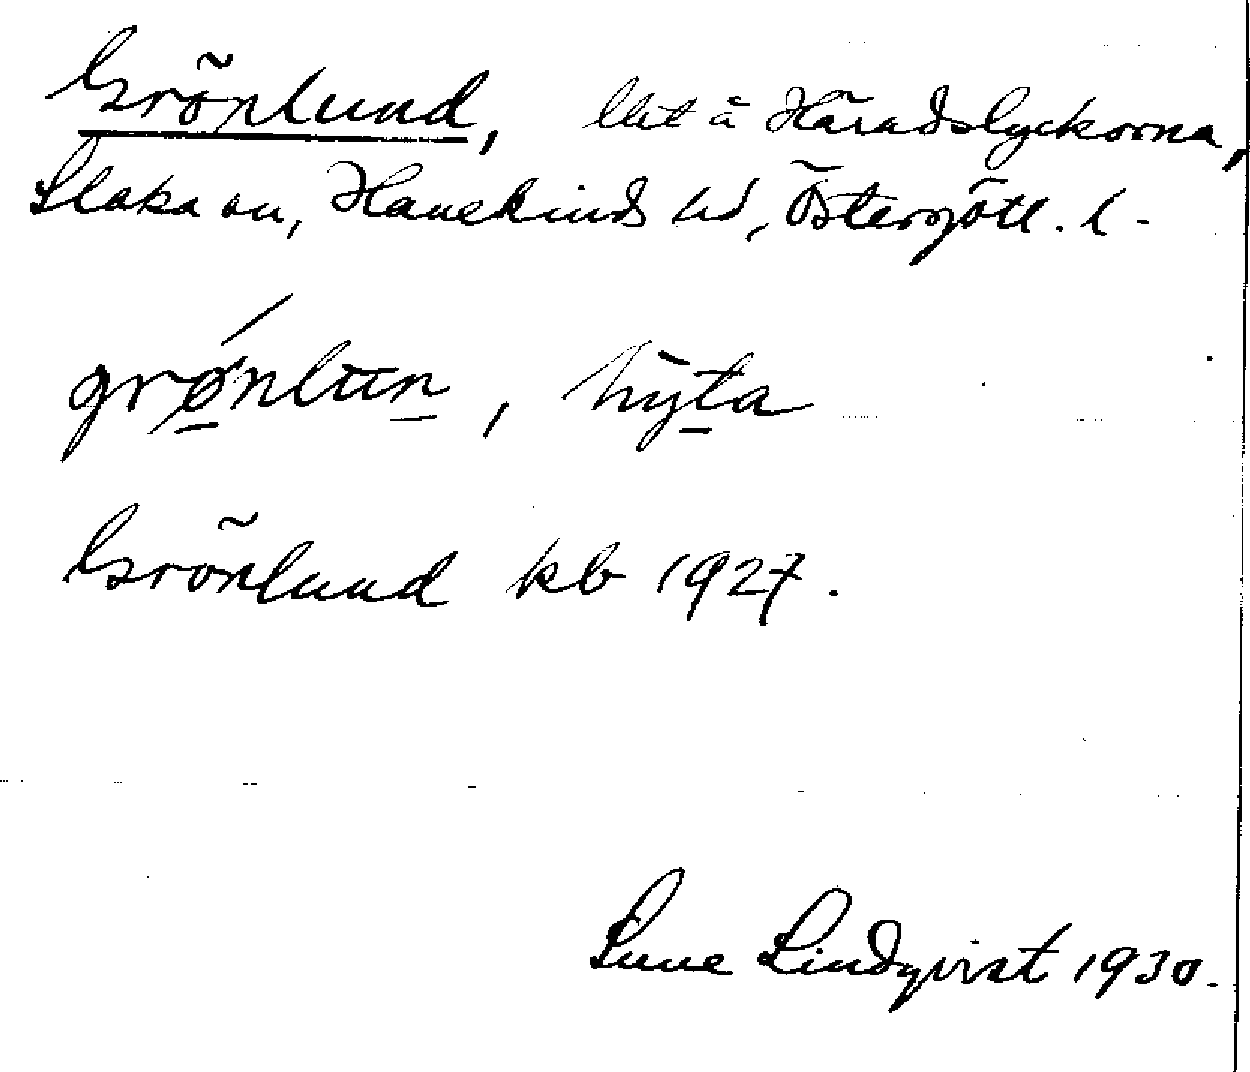 Grönlund, lht å Häradslyckorna,
Slaka sn, Hanekinds hd, Östergötl. l.
grǿnlun, hyta
Grönlund kb 1927.
Sune Lindqvist 1930.